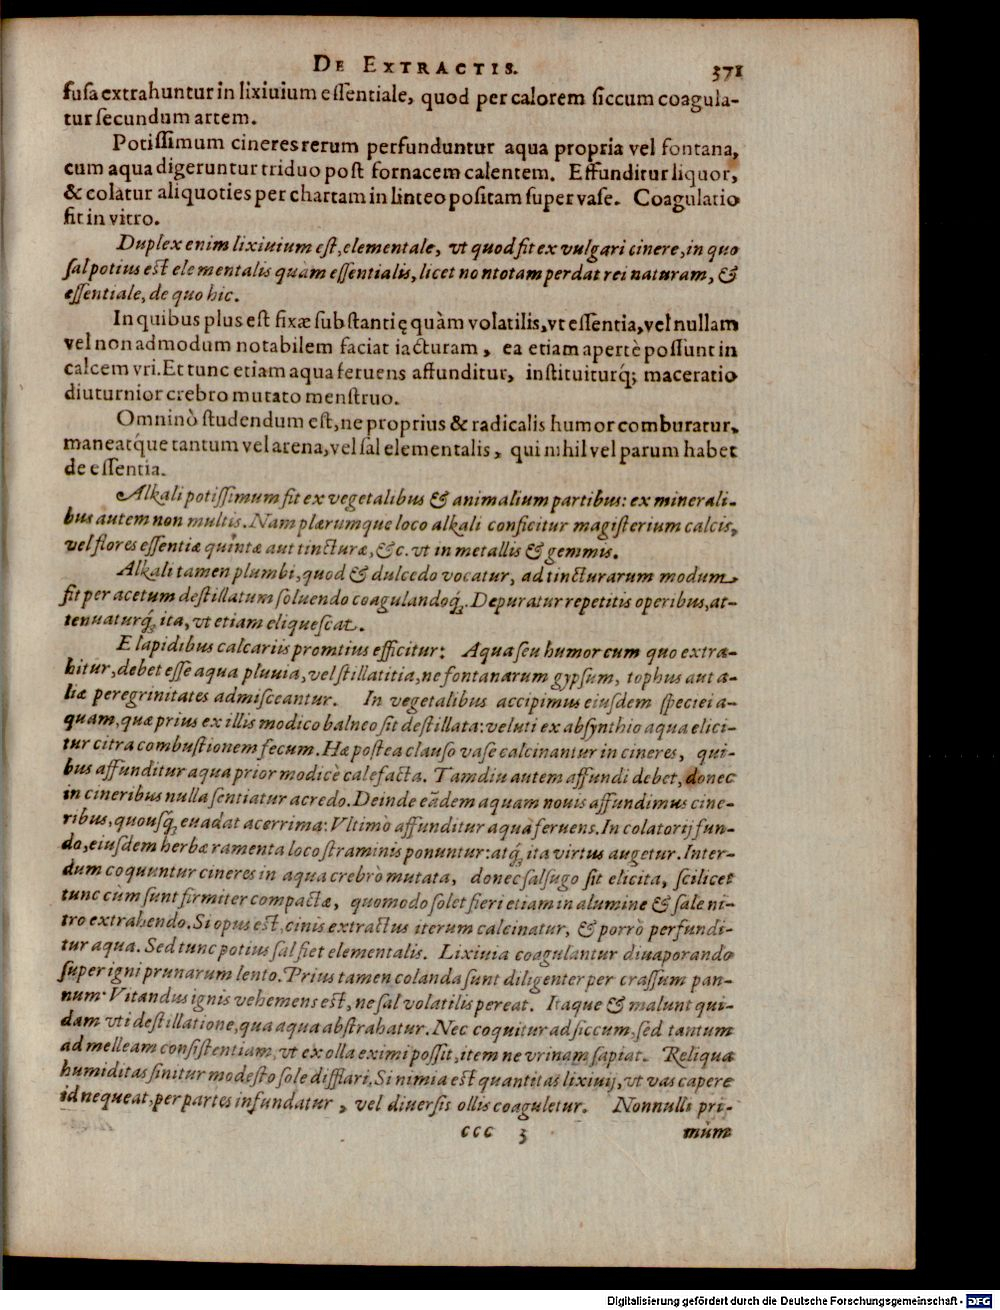 DE EXTRACTIS. 371
fusa extrahuntur in lixiuium essentiale, quod per calorem siccum coagula-
tur secundum artem.
Potissimum cineres rerum perfunduntur aqua propria vel fontana,
cum aqua digeruntur triduo post fornacem calentem. Effunditur liquor,
& colatur aliquoties per chartam in linteo positam super vase. Coagulatio
fit in vitro.
Duplex enim lixiuium est, elementale, vt quod fit ex vulgari cinere, in quo
sal potius est elementalis quàm essentialis, licet non totam perdat rei naturam, &
essentiale, de quo hic.
In quibus plus est fixæ substantię quàm volatilis, vt essentia, vel nullam
vel non admodum notabilem faciat iacturam, ea etiam apertè possunt in
calcem vri. Et tunc etiam aqua feruens affunditur, instituiturq; maceratio
diuturnior crebro mutato menstruo.
Omninò studendum est, ne proprius & radicalis humor comburatur,
maneatq́ue tantum vel arena, vel sal elementalis, qui nihil vel parum habet
de essentia.
Alkali potissimum fit ex vegetalibus & animalium partibus: ex minerali-
bus autem non multis. Nam plærumque loco alkali conficitur magisterium calcis,
vel flores essentiæ quintæ aut tincturæ, &c. vt in metallis & gemmis.
Alkali tamen plumbi, quod & dulcedo vocatur, ad tincturarum modum
fit per acetum destillatum soluendo coagulandoq́;. Depuratur repetitis operibus, at-
tenuaturq́; ita, vt etiam eliquescat.
E lapidibus calcariis promtius efficitur: Aqua seu humor cum quo extra-
hitur, debet esse aqua pluuia, vel stillatitia, ne fontanarum gypsum, tophus aut a-
liæ peregrinitates admisceantur. In vegetalibus accipimus eiusdem speciei a-
quam, quæ prius ex illis modico balneo sit destillata: veluti ex absynthio aqua elici-
tur citra combustionem fecum. Hæ postea clauso vase calcinantur in cineres, qui-
bus affunditur aqua prior modicè calefacta. Tamdiu autem affundi debet, donec
in cineribus nulla sentiatur acredo. Deinde eādem aquam nouis affundimus cine-
ribus, quousq́; euadat acerrima: Vltimò affunditur aqua feruens. In colatorij fun-
do, eiusdem herbæ ramenta loco straminis ponuntur: atq́; ita virtus augetur. Inter-
dum coquuntur cineres in aqua crebrò mutata, donec salsugo sit elicita, scilicet
tunc cùm sunt firmiter compactæ, quomodo solet fieri etiam in alumine & sale ni-
tro extrahendo. Si opus est, cinis extractus iterum calcinatur, & porrò perfundi-
tur aqua. Sed tunc potius sal fiet elementalis. Lixiuia coagulantur diuaporando
super igni prunarum lento. Prius tamen colanda sunt diligenter per crassum pan-
num. Vitandus ignis vehemens est, ne sal volatilis pereat. Itaque & malunt qui-
dam vti destillatione, qua aqua abstrahatur. Nec coquitur ad siccum, sed tantum
ad melleam consistentiam, vt ex olla eximi possit, item ne vrinam sapiat. Reliqua
humiditas sinitur modesto sole difflari. Si nimia est quantitas lixiuij, vt vas capere
id nequeat, per partes infundatur, vel diuersis ollis coaguletur. Nonnulli pri-
ccc 3 mùm
Digitalisierung gefördert durch die Deutsche Forschungsgemeinschaft - DFG